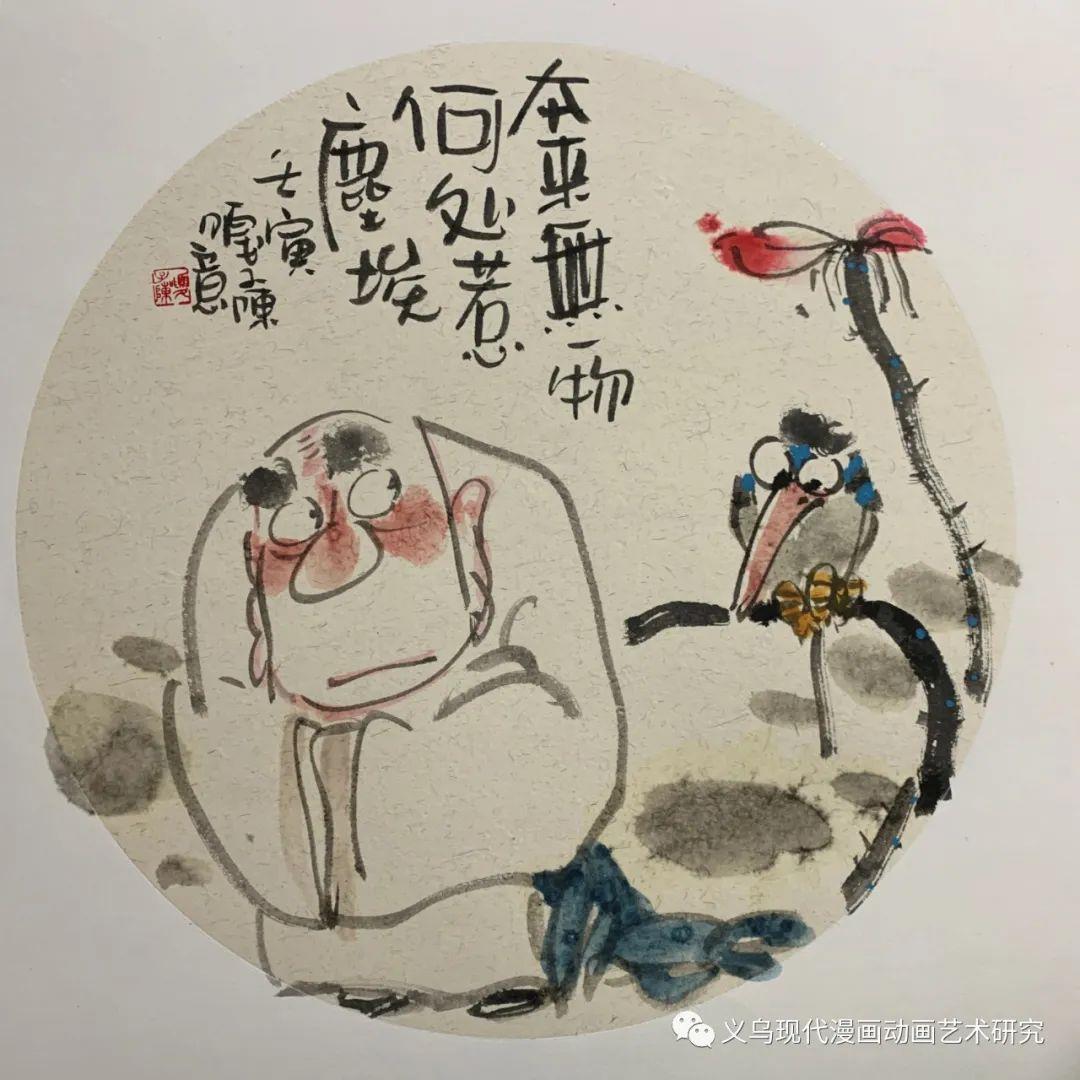 本来無一物
何处惹
塵埃
壬寅
陳
意
義乌现代漫画动画艺术研究